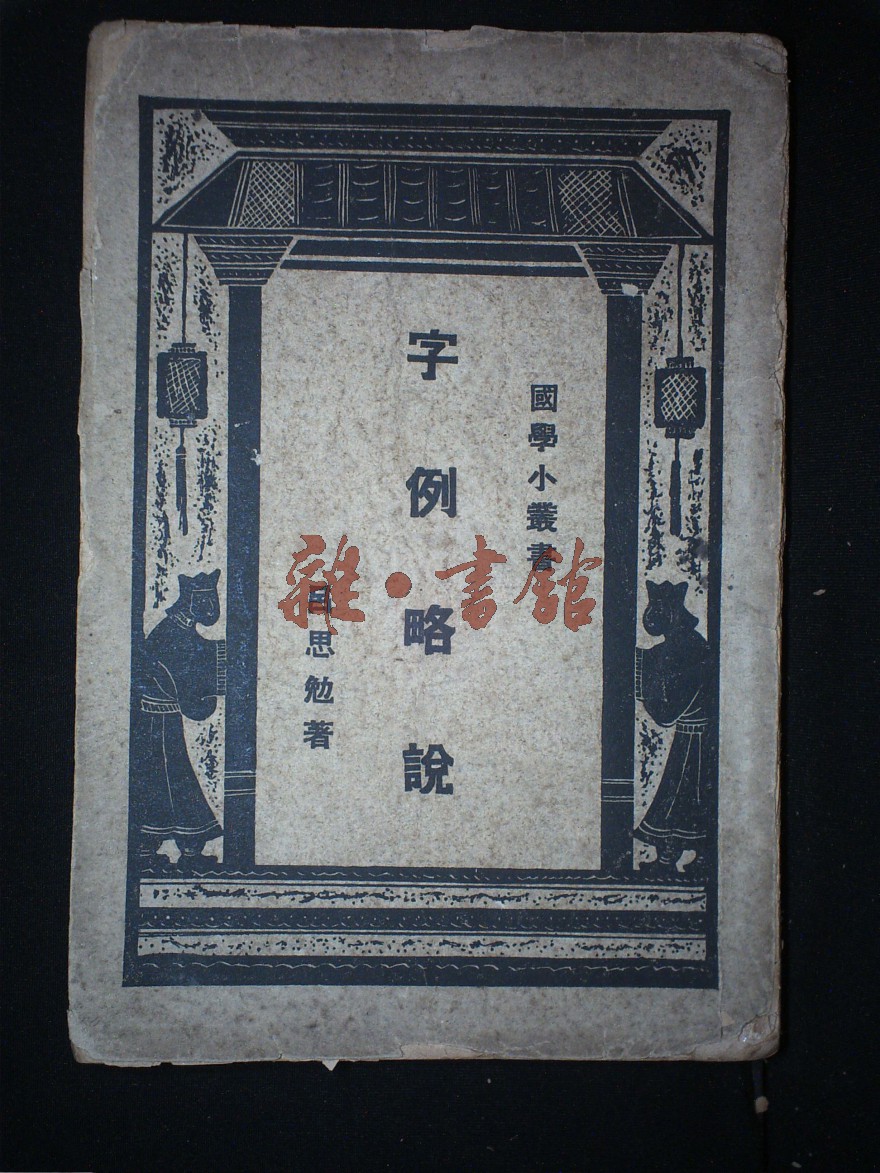 國學小叢書
字例略說
呂思勉著
雜·書館